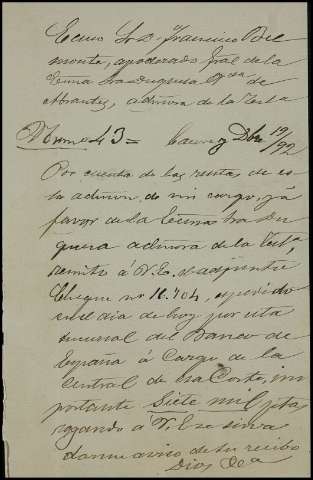 Excmo Sr D. Francisco Bel
monte, apoderado gral de la
Excma Sra Duquesa Vda de
Abrantes, admora de la Testa
Num 43 = Caceres Dbre 19/92
Por cuenta de las rentas de es
ta admon. de mi cargo, y á
favor de la Excma Sra Du
quesa admora de la Testa,
remito á V.E. el adjunto
Cheque no 16.704, expedido
en el dia de hoy por esta
sucursal del Banco de
España á cargo de la
Central de esa Corte, im
portante Siete mil ptas
rogando á V.E. se sirva
darme aviso de su recibo
Dios &a